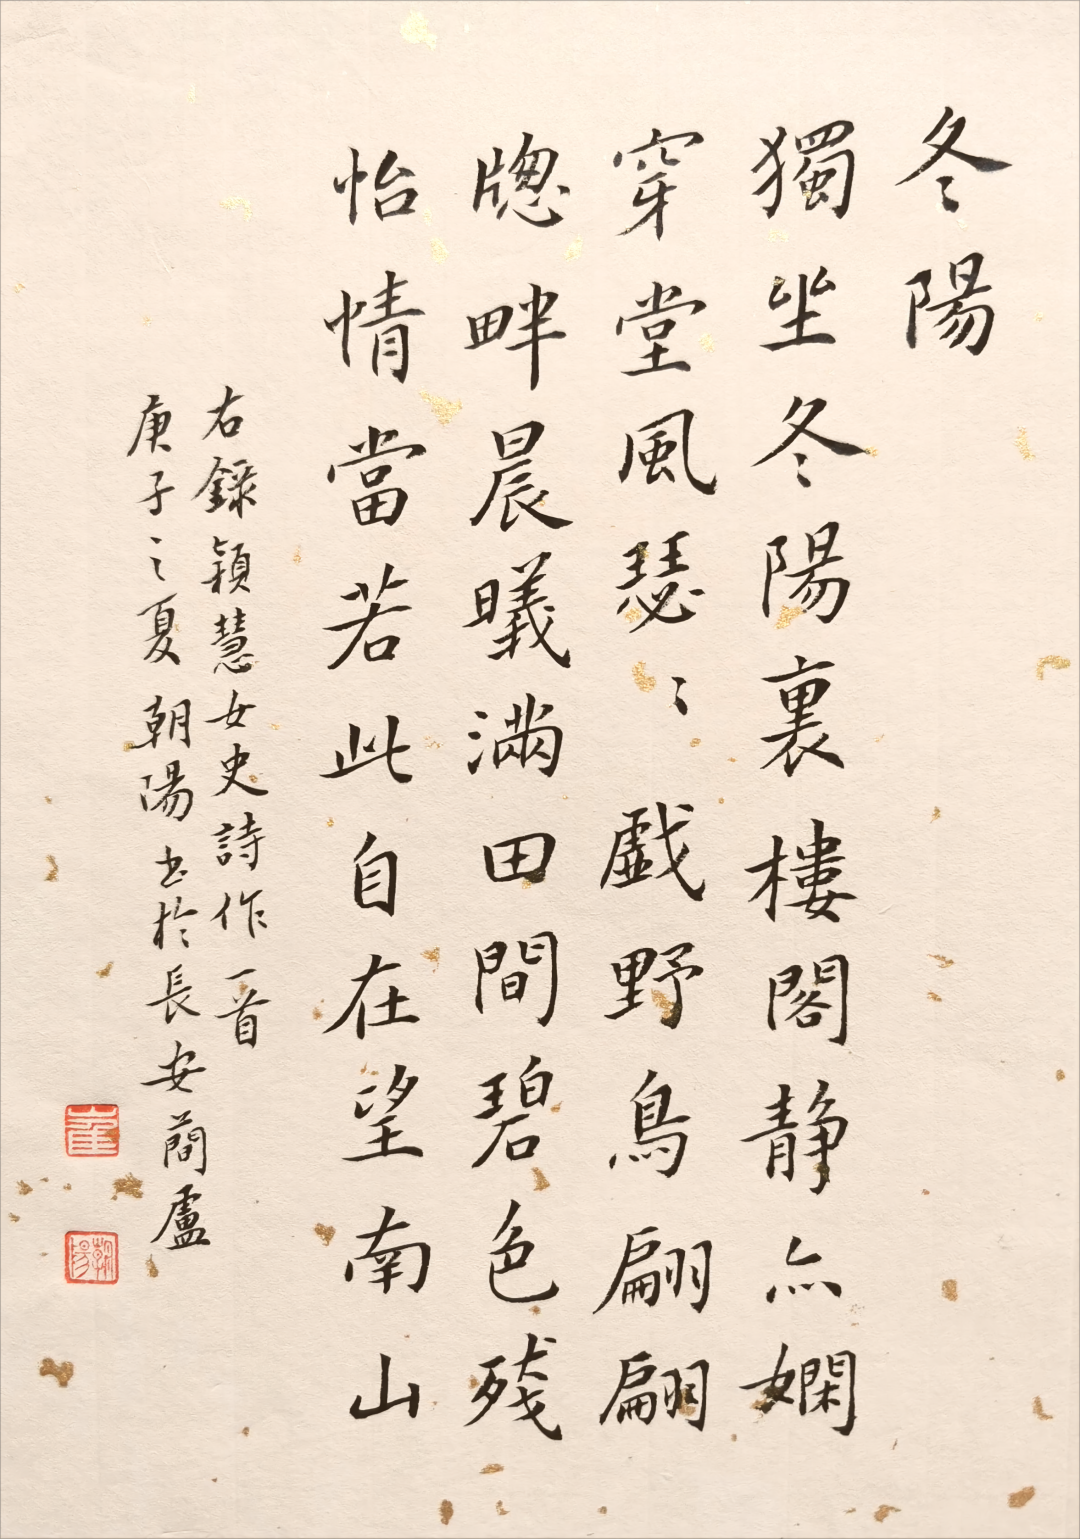 冬陽
獨坐冬陽裏樓閣静亦嫻
穿堂風瑟〻戯野鳥翩翩
牕畔晨曦滿田間碧色残
怡情當若此自在望南山
右錄穎慧女史詩作一首
庚子之夏朝陽书於長安蕳盧
崔
朝陽